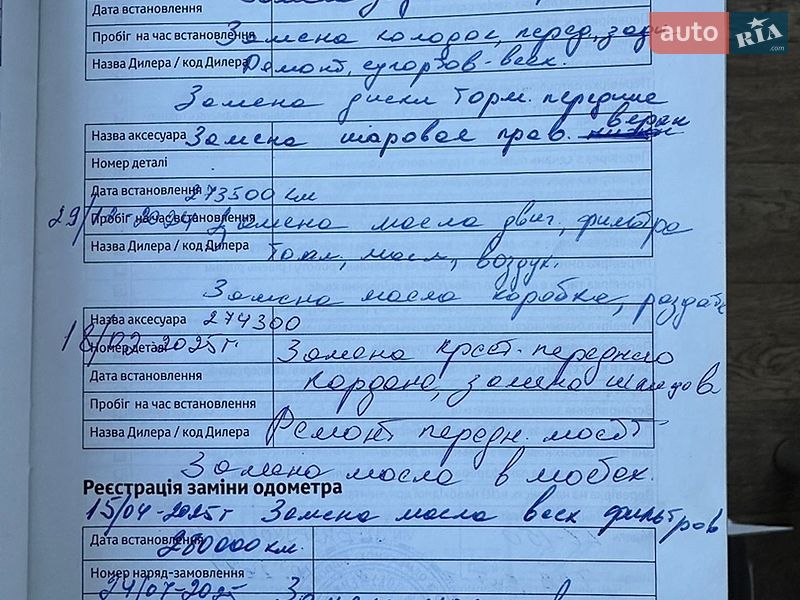 Дата встановлення
Пробіг на час встановлення Замена колодок, перед, зад
Назва Дилера / код Дилера Ремонт, суппортов - всех.
Замена диски торм. передние
Назва аксесуара Замена шаровое прав. верхн
Номер деталі
Дата встановлення 273500 км
29/ -2024 Пробіг на час встановлення Замена масла двиг, фильтра
Назва Дилера / код Дилера Топл, масл, воздух.
Замена масла коробке, раздатк
Назва аксесуара 274300
18/03-2025г Номер деталі Замена крест. переднего
Дата встановлення кардана, замена
Пробіг на час встановлення
Назва Дилера / код Дилера Ремонт передн. мост
Замена масла в мостах.
Реєстрація заміни одометра
15/04-2025г Замена масла всех фильтров
Дата встановлення 280000 км.
Номер наряд-замовлення
24/07-2025
auto RIA .com